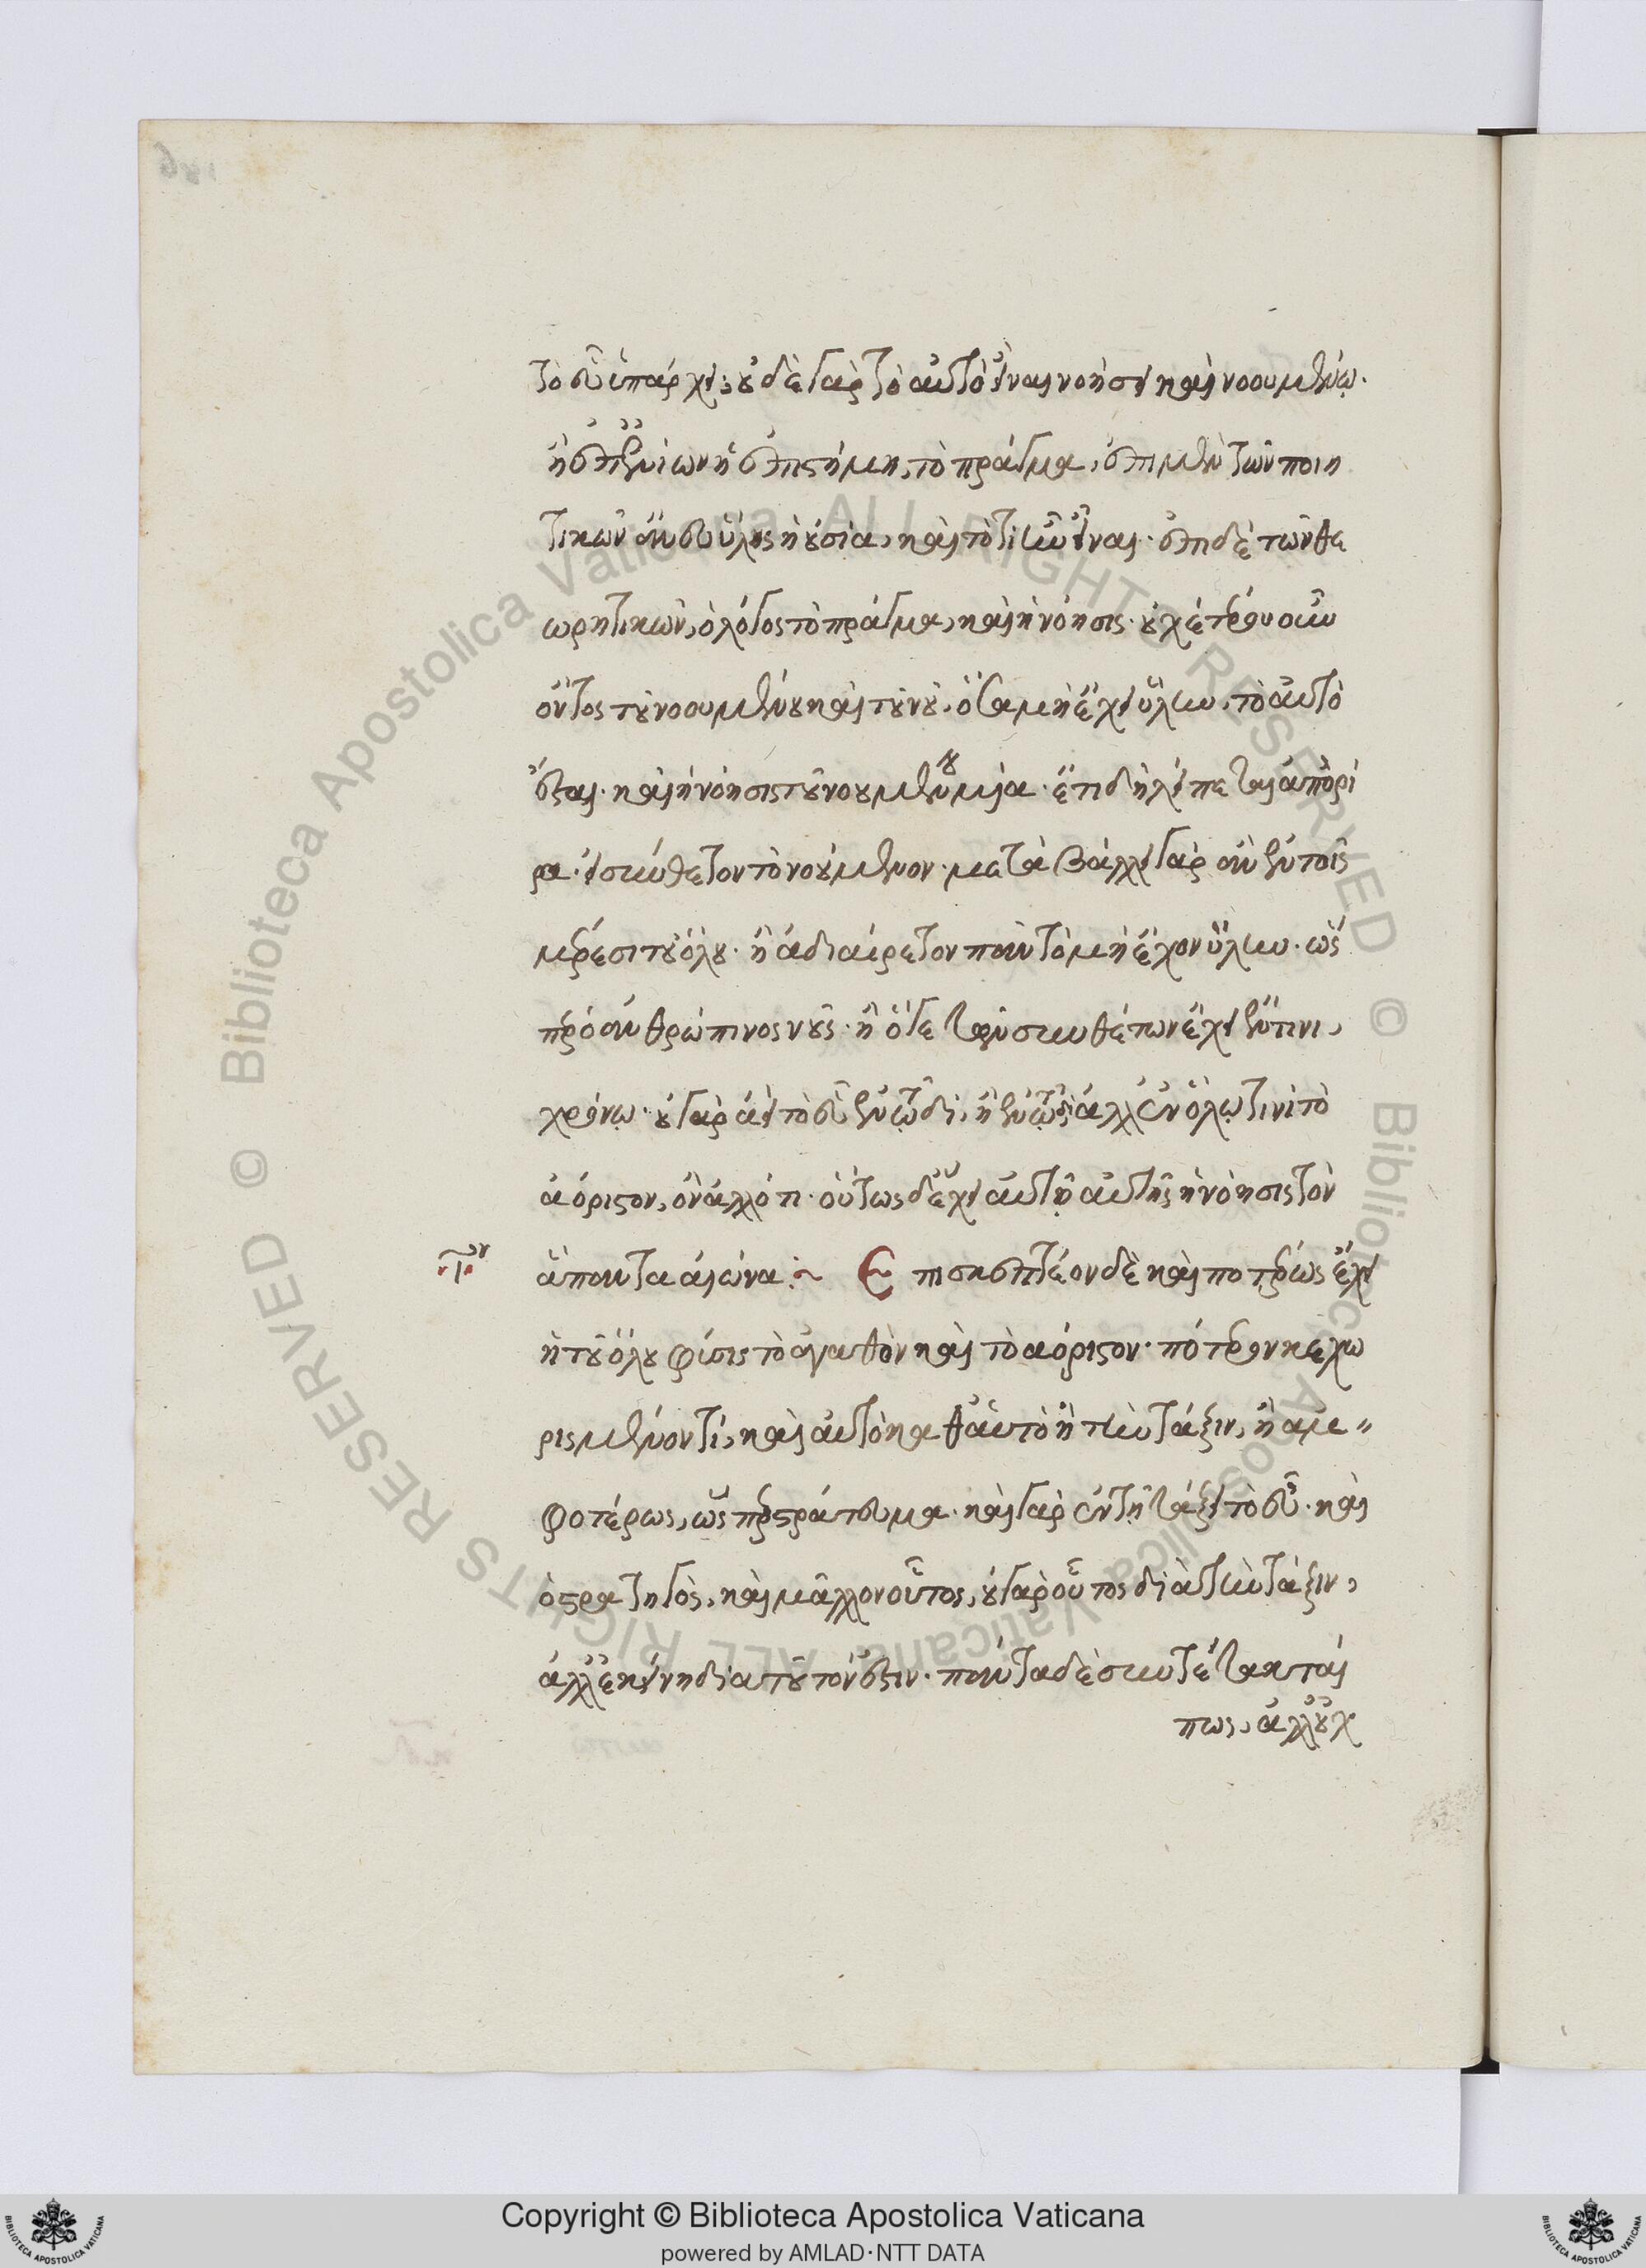 τὸ εὖ ὑπάρχει; οὐδὲ γὰρ τὸ αὐτὸ εἶναι νοήσει καὶ νοουμένῳ.
ἢ ἐπ' ἐνίων ἡ ἐπιστήμη, τὸ πρᾶγμα, ἐπὶ μὲν τῶν ποιη
τικῶν ἄνευ ὕλης ἡ οὐσία, καὶ τὸ τί ἦν εἶναι. ἐπὶ δὲ τῶν θε
ωρητικῶν, ὁ λόγος τὸ πρᾶγμα, καὶ ἡ νόησις. οὐχ ἑτέρου οὖν
ὄντος τοῦ νοουμένου καὶ τοῦ νοῦ, ὅσα μὴ ἔχει ὕλην, τὸ αὐτὸ
ἔσται. καὶ ἡ νόησις τοῦ νουμένου μία. ἔτι δὴ λείπεται ἀπορί
ρα. εἰ σύνθετον τὸ νούμενον. μεταβάλλει γὰρ ἂν ἐν τοῖς
μέρεσι τοῦ ὅλου. ἢ ἀδιαίρετον πᾶν τὸ μὴ ἔχον ὕλην. ὥσ
περ ὁ ἀνθρώπινος νοῦς. ἢ ὅγε τῶν συνθέτων ἔχει ἔν τινι,
χρόνῳ. οὐ γὰρ ἀεὶ τὸ εὖ ἐν τῷδὶ, ἢ ἐν τῳδὶ ἀλλ' ἐν ὅλῳ τινὶ τὸ
ἀόριστον, ὂν ἄλλό τι. οὕτως δ' ἔχει αὐτὴ αὐτῆς ἡ νόησις τὸν
ἅπαντα αἰῶνα :~ Επισκεπτέον δὲ καὶ ποτέρως ἔχει
ἡ τοῦ ὅλου φύσις τὸ ἀγαθὸν καὶ τὸ αόριστον. πότερον κεχω
ρισμένον τί, καὶ αὐτὸ καθ' αὑτὸ ἢ τὴν τάξιν, ἢ αμ
φοτέρως, ὥσπερ στράτευμα. καὶ γὰρ ἐν τῇ τάξει τὸ εὖ. καὶ
ὁ στρατηγὸς, καὶ μᾶλλον οὗτος, οὐ γὰρ οὗτος διὰ τὴν τάξιν,
ἀλλ' ἐκείνη διὰ τοῦτόν ἐστιν. πάντα δὲ συντέτακταί
πως, ἀλλ' οὐχ